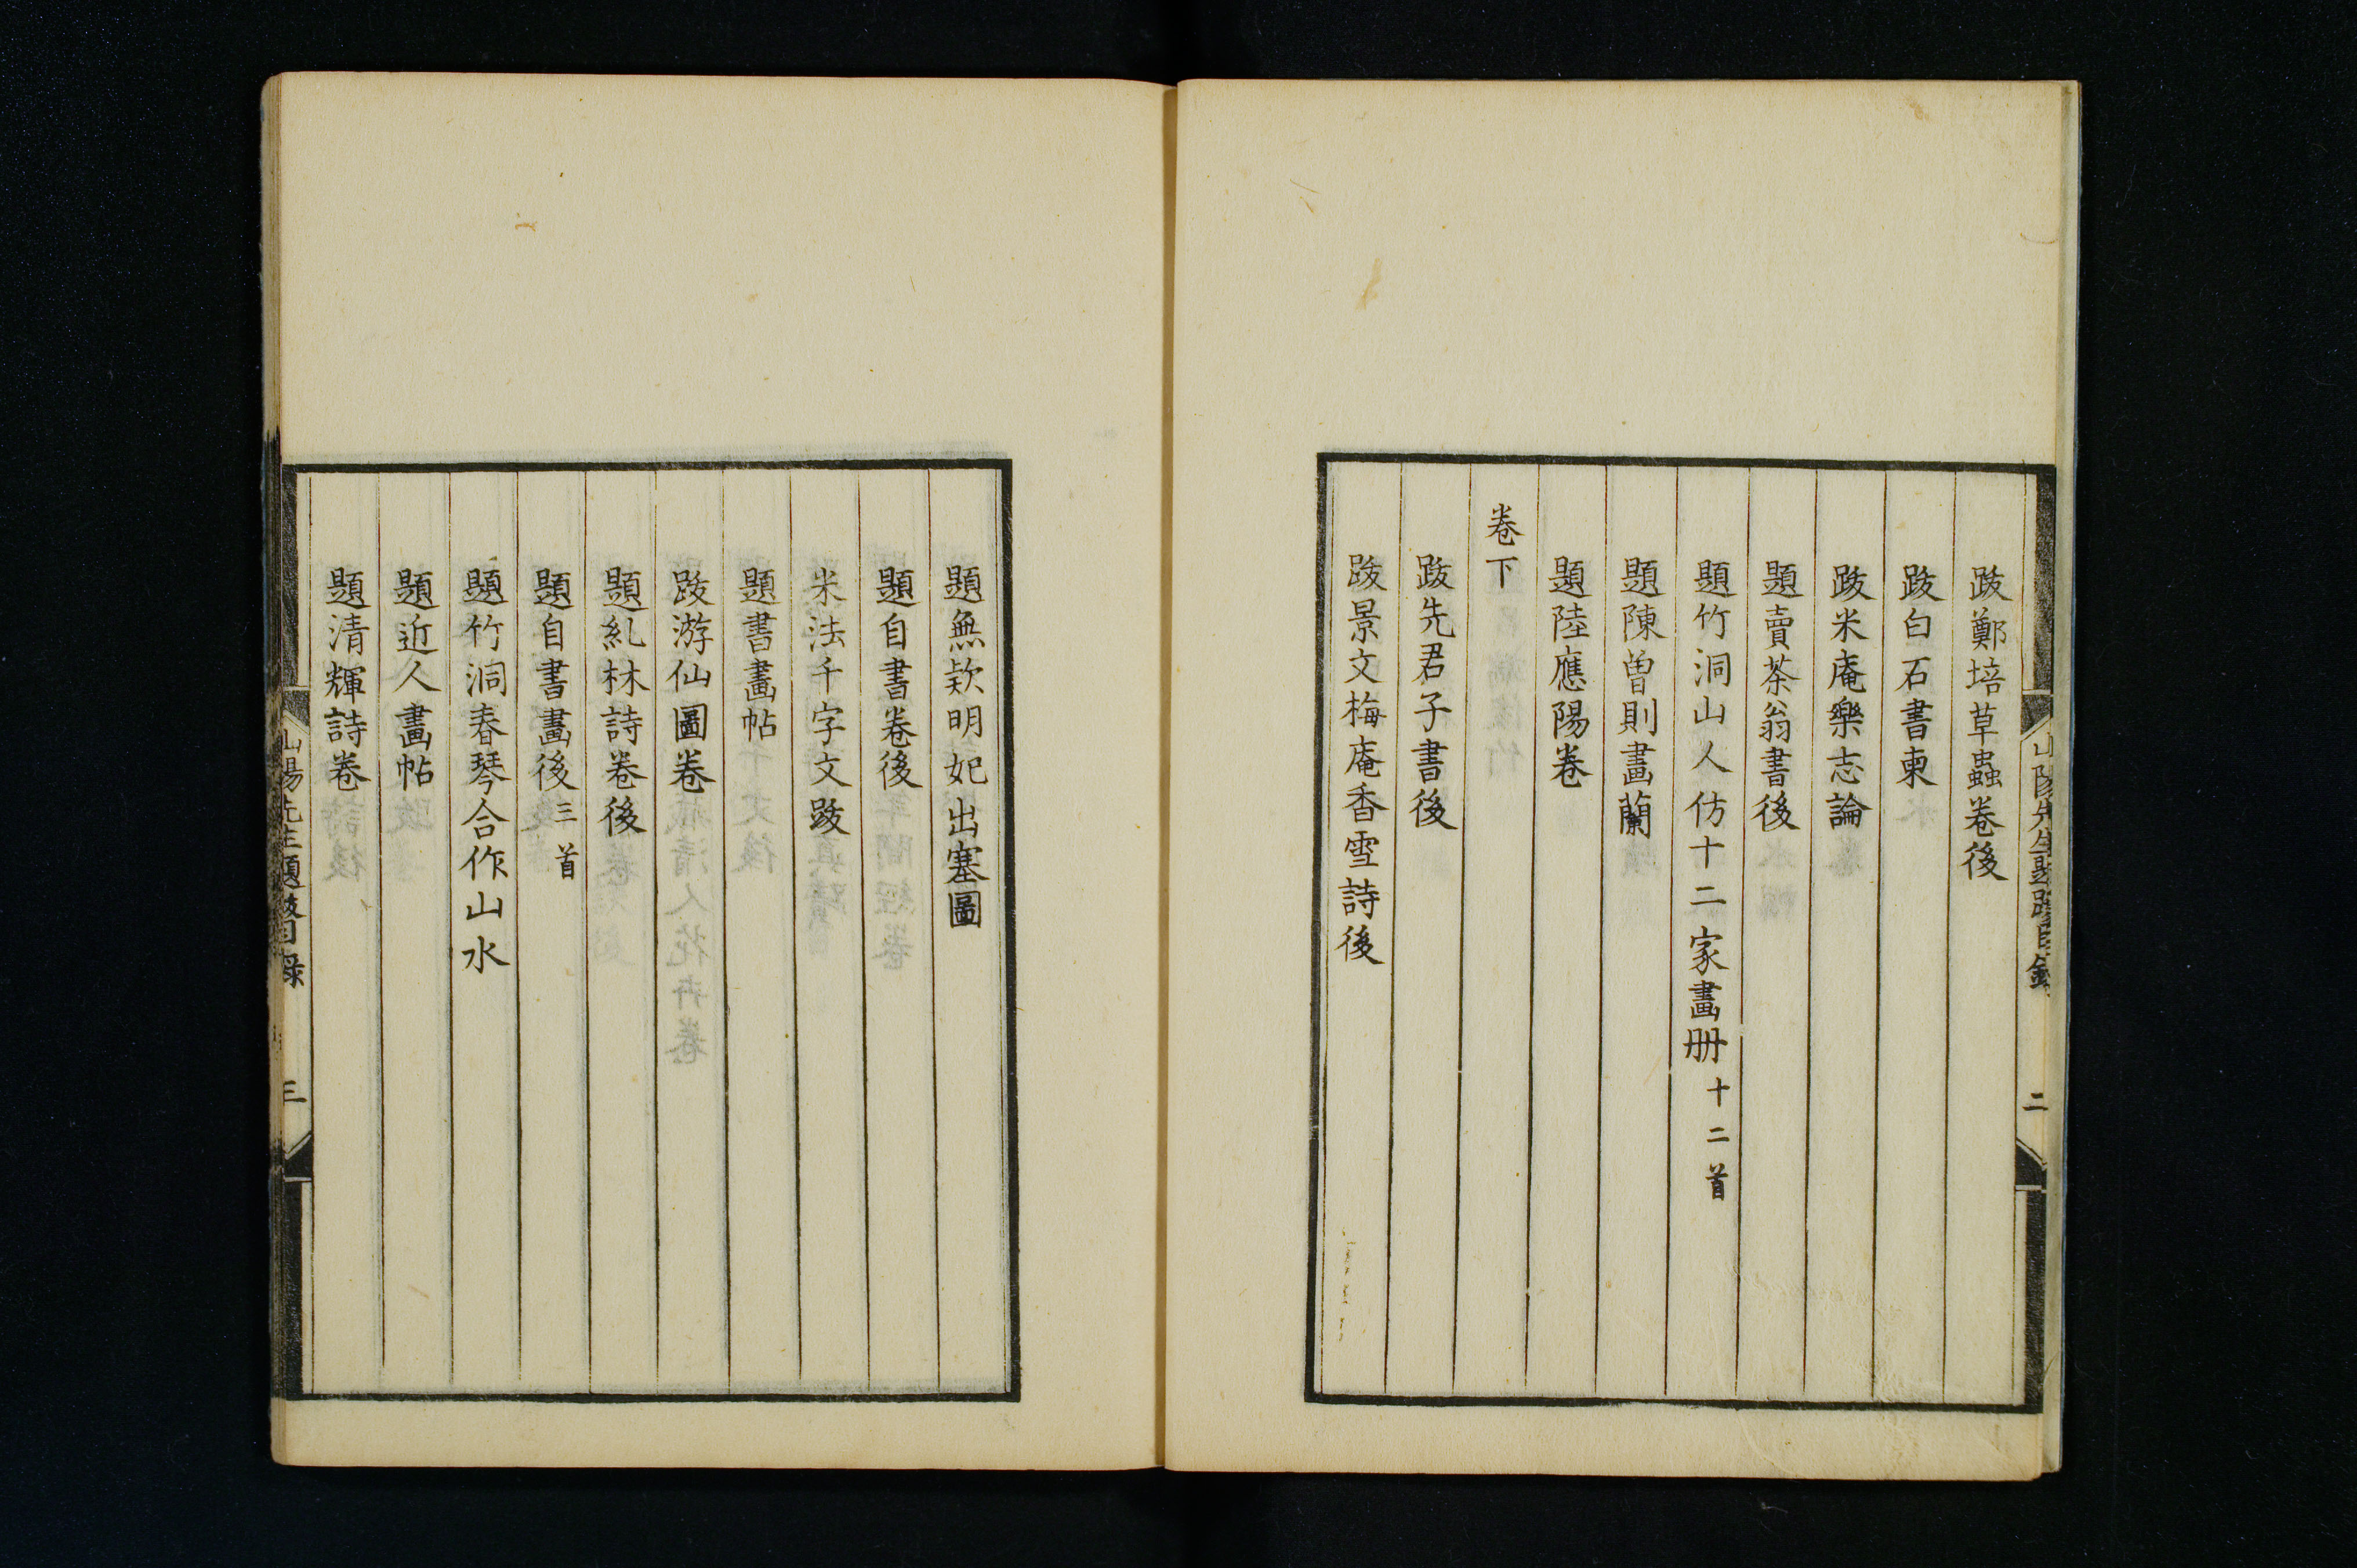 山陽先生題跋目錄
二
跋鄭培草蟲卷後
跋白石書柬
跋米庵樂志論
題賣茶翁書後
題竹洞山人仿十二家畫册十二首
題陳曽則畫蘭
題陸應陽卷
卷下
跋先君子書後
跋景文梅庵香雪詩後
題無欵明妃出塞圖
題自書卷後
米法千字文跋
題書畫帖
跋游仙圖卷
題糺林詩卷後
題自書畫後三首
題竹洞春琴合作山水
題近人畫帖
題清輝詩卷
山陽先生題跋目錄
三